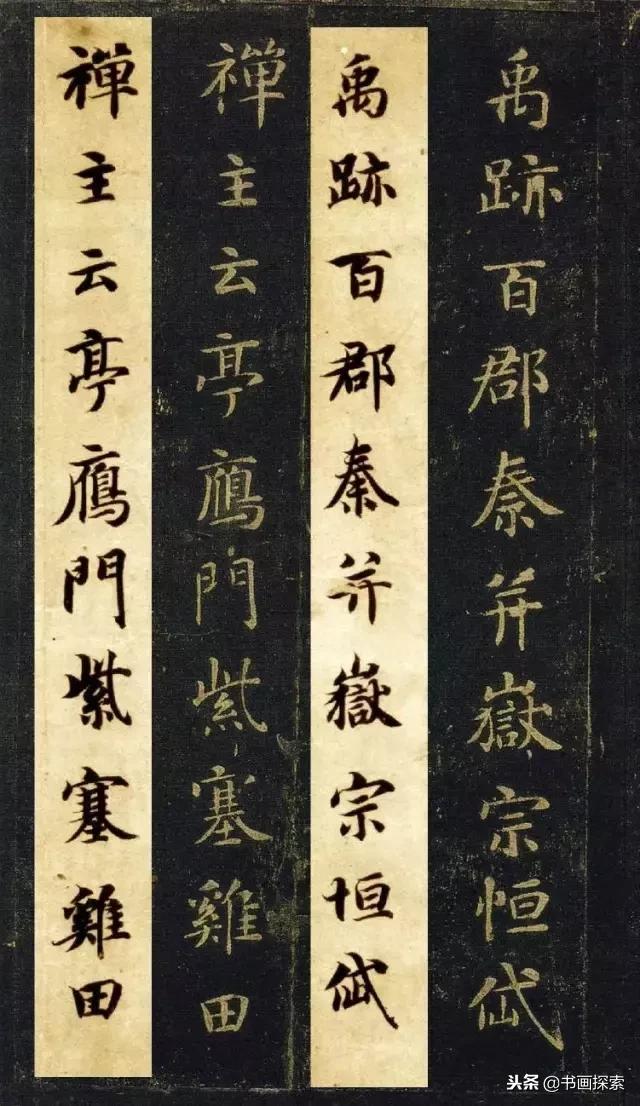 禹跡百郡秦并嶽宗恒岱
禹跡百郡秦并嶽宗恒岱
禪主云亭鴈門紫塞雞田
禪主云亭鴈門紫塞雞田
头条 @书画探索